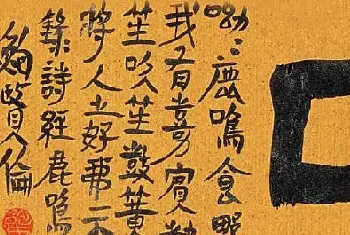 呦〻鹿鳴食野
我有嘉賓鼓
笙吹笙鼓簧
將人之好
錄詩經鹿鳴
鮑賢倫